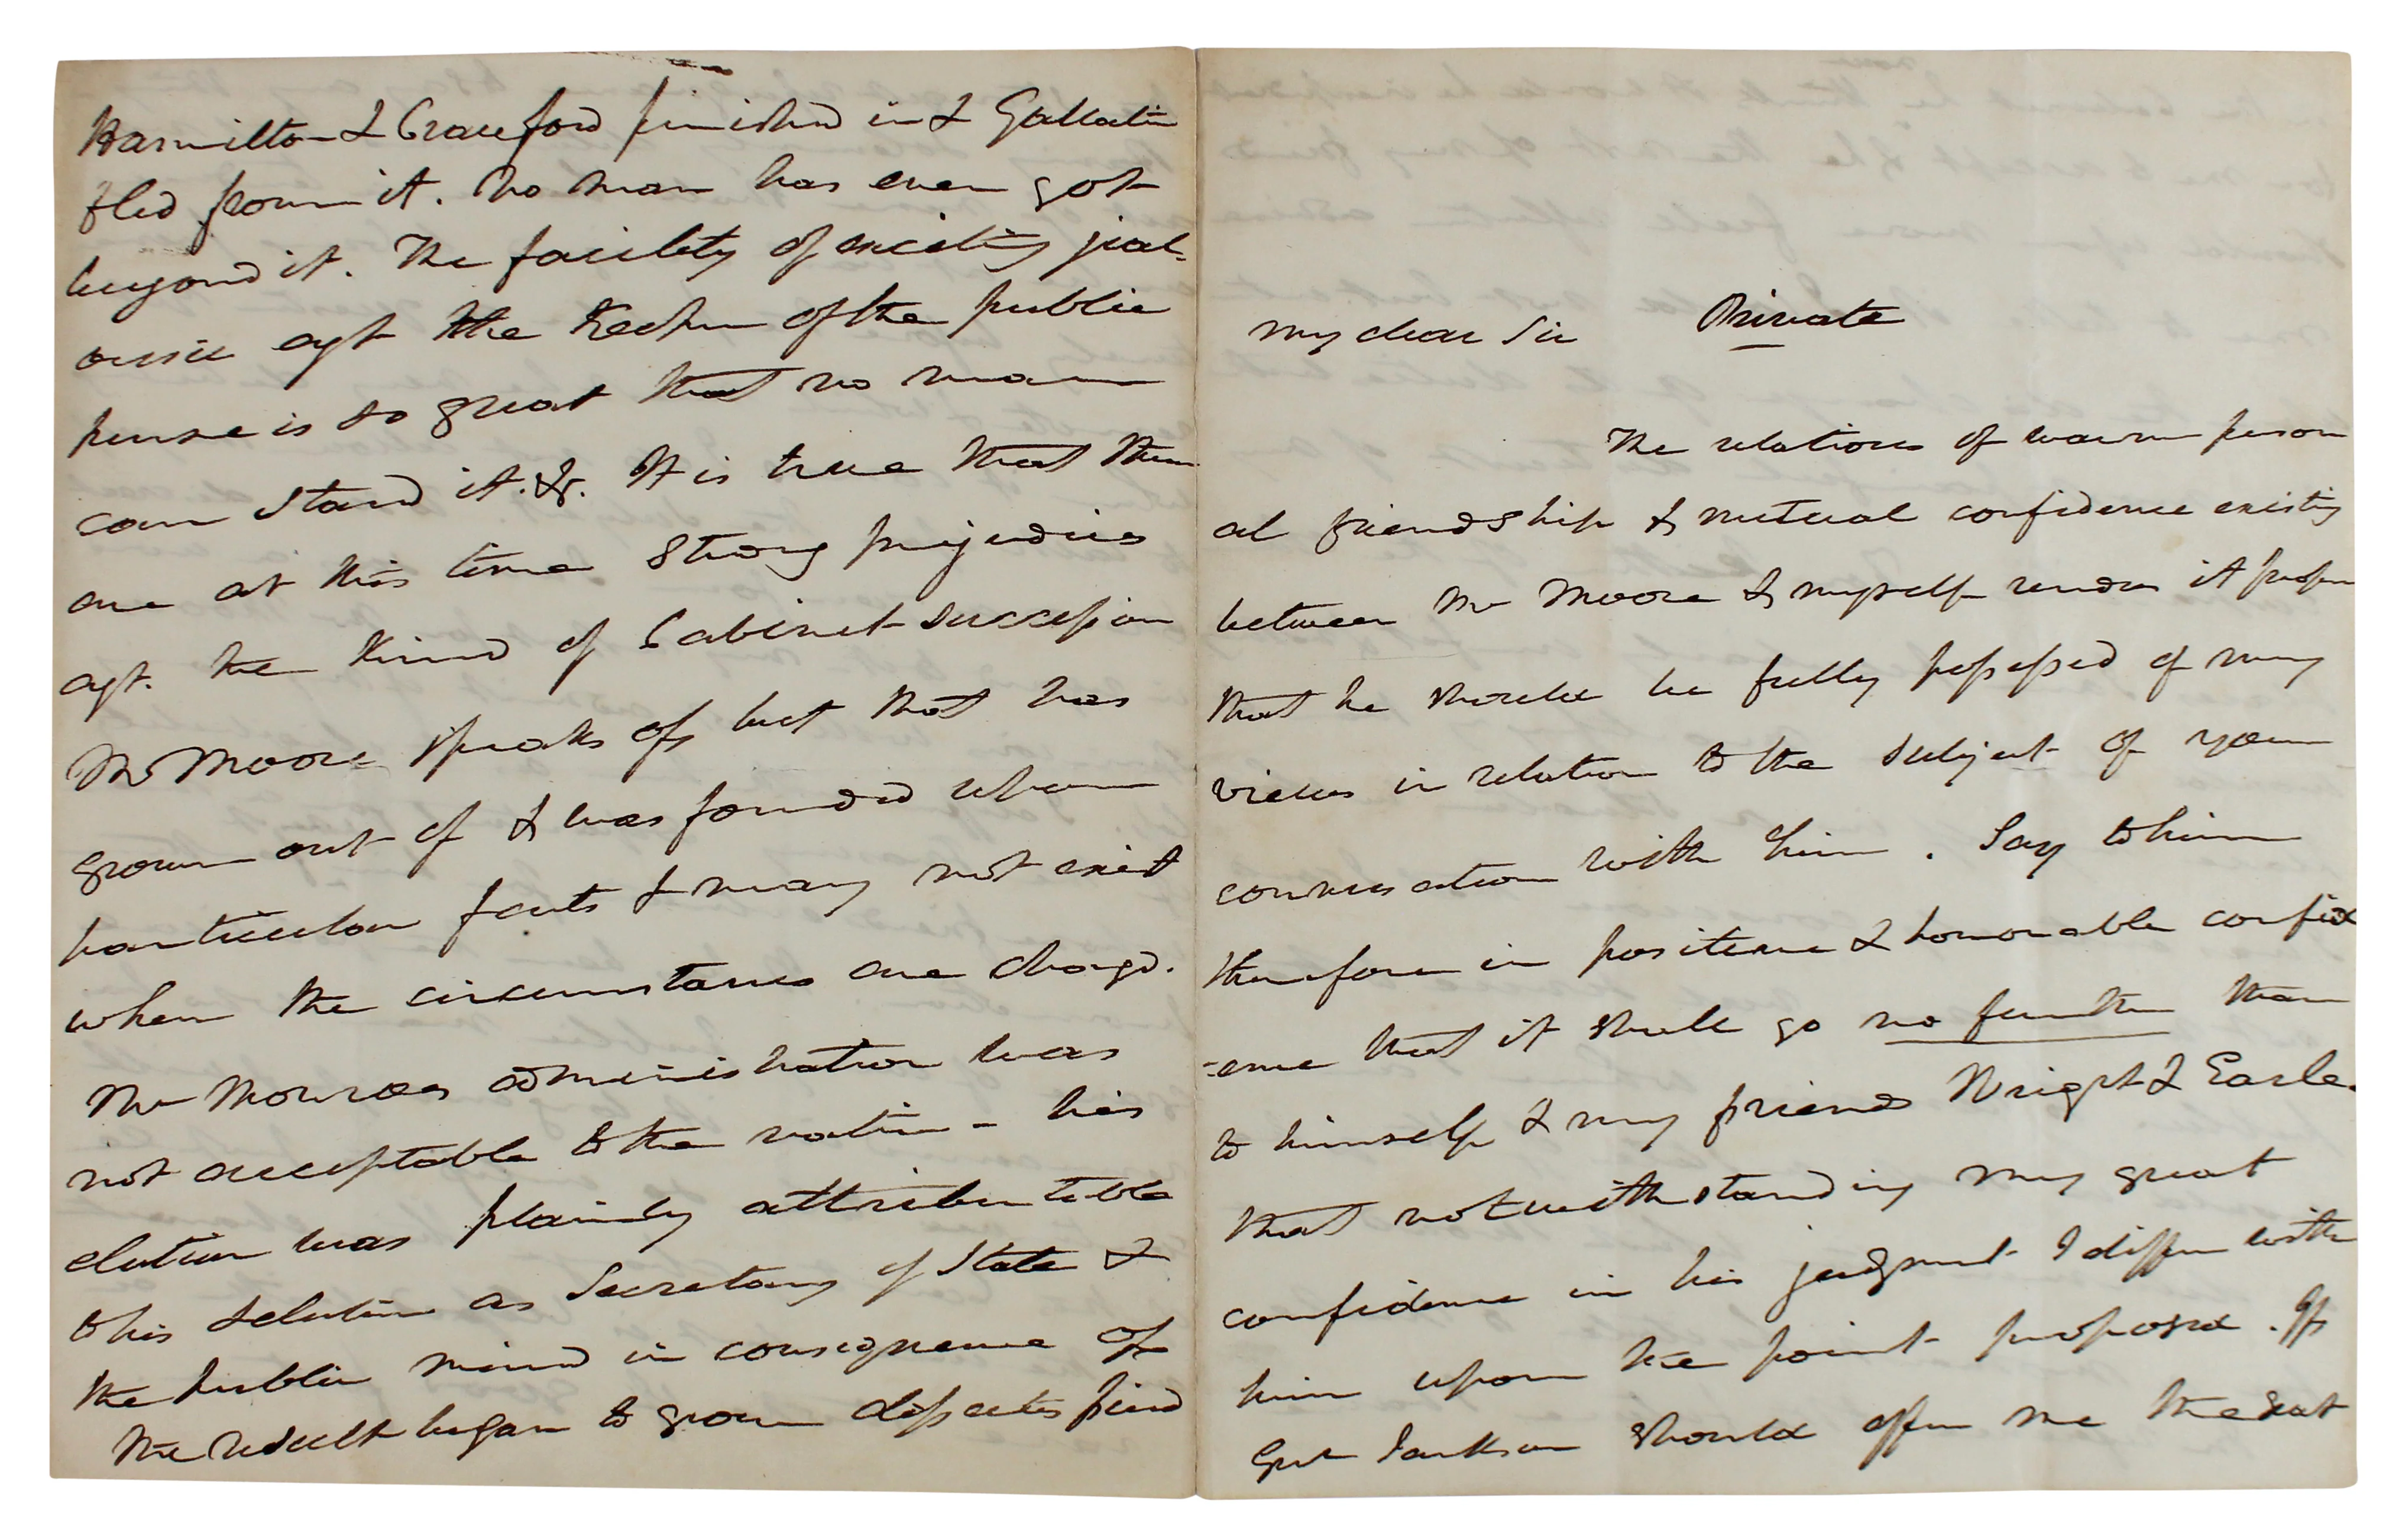 Hamilton & Crawford finished in & Gallatin
fled from it. No man has ever got
beyond it. The facility of exciting jeal-
ousie agt the Keeper of the public
purse is so great that no man
can stand it. &. It is true that there
are at this time strong prejudices
agt. the Kind of Cabinet succession
Mr Moore speaks of, but that has
grown out of & was founded upon
particular facts & may not exist
when the circumstances are changd.
Mr Monroes administration was
not acceptable to the nation - his
election was plainly attributable
to his selection as Secretary of State &
the public mind in consequence of
the result began to grow
My dear Sir Private
The relations of warm person
al friendship & mutual confidence existing
between Mr Moore & myself renders it proper
that he should be fully possessed of my
views in relation to the subject of your
conversation with him. Say to him
therefore in positive & honorable confid
-ence that it shall go no further than
to himself & my friends Wright & Earle.
that notwithstanding my great
confidence in his judgment I differ with
him upon the point proposed. If
Genl Jackson should offer me the seat